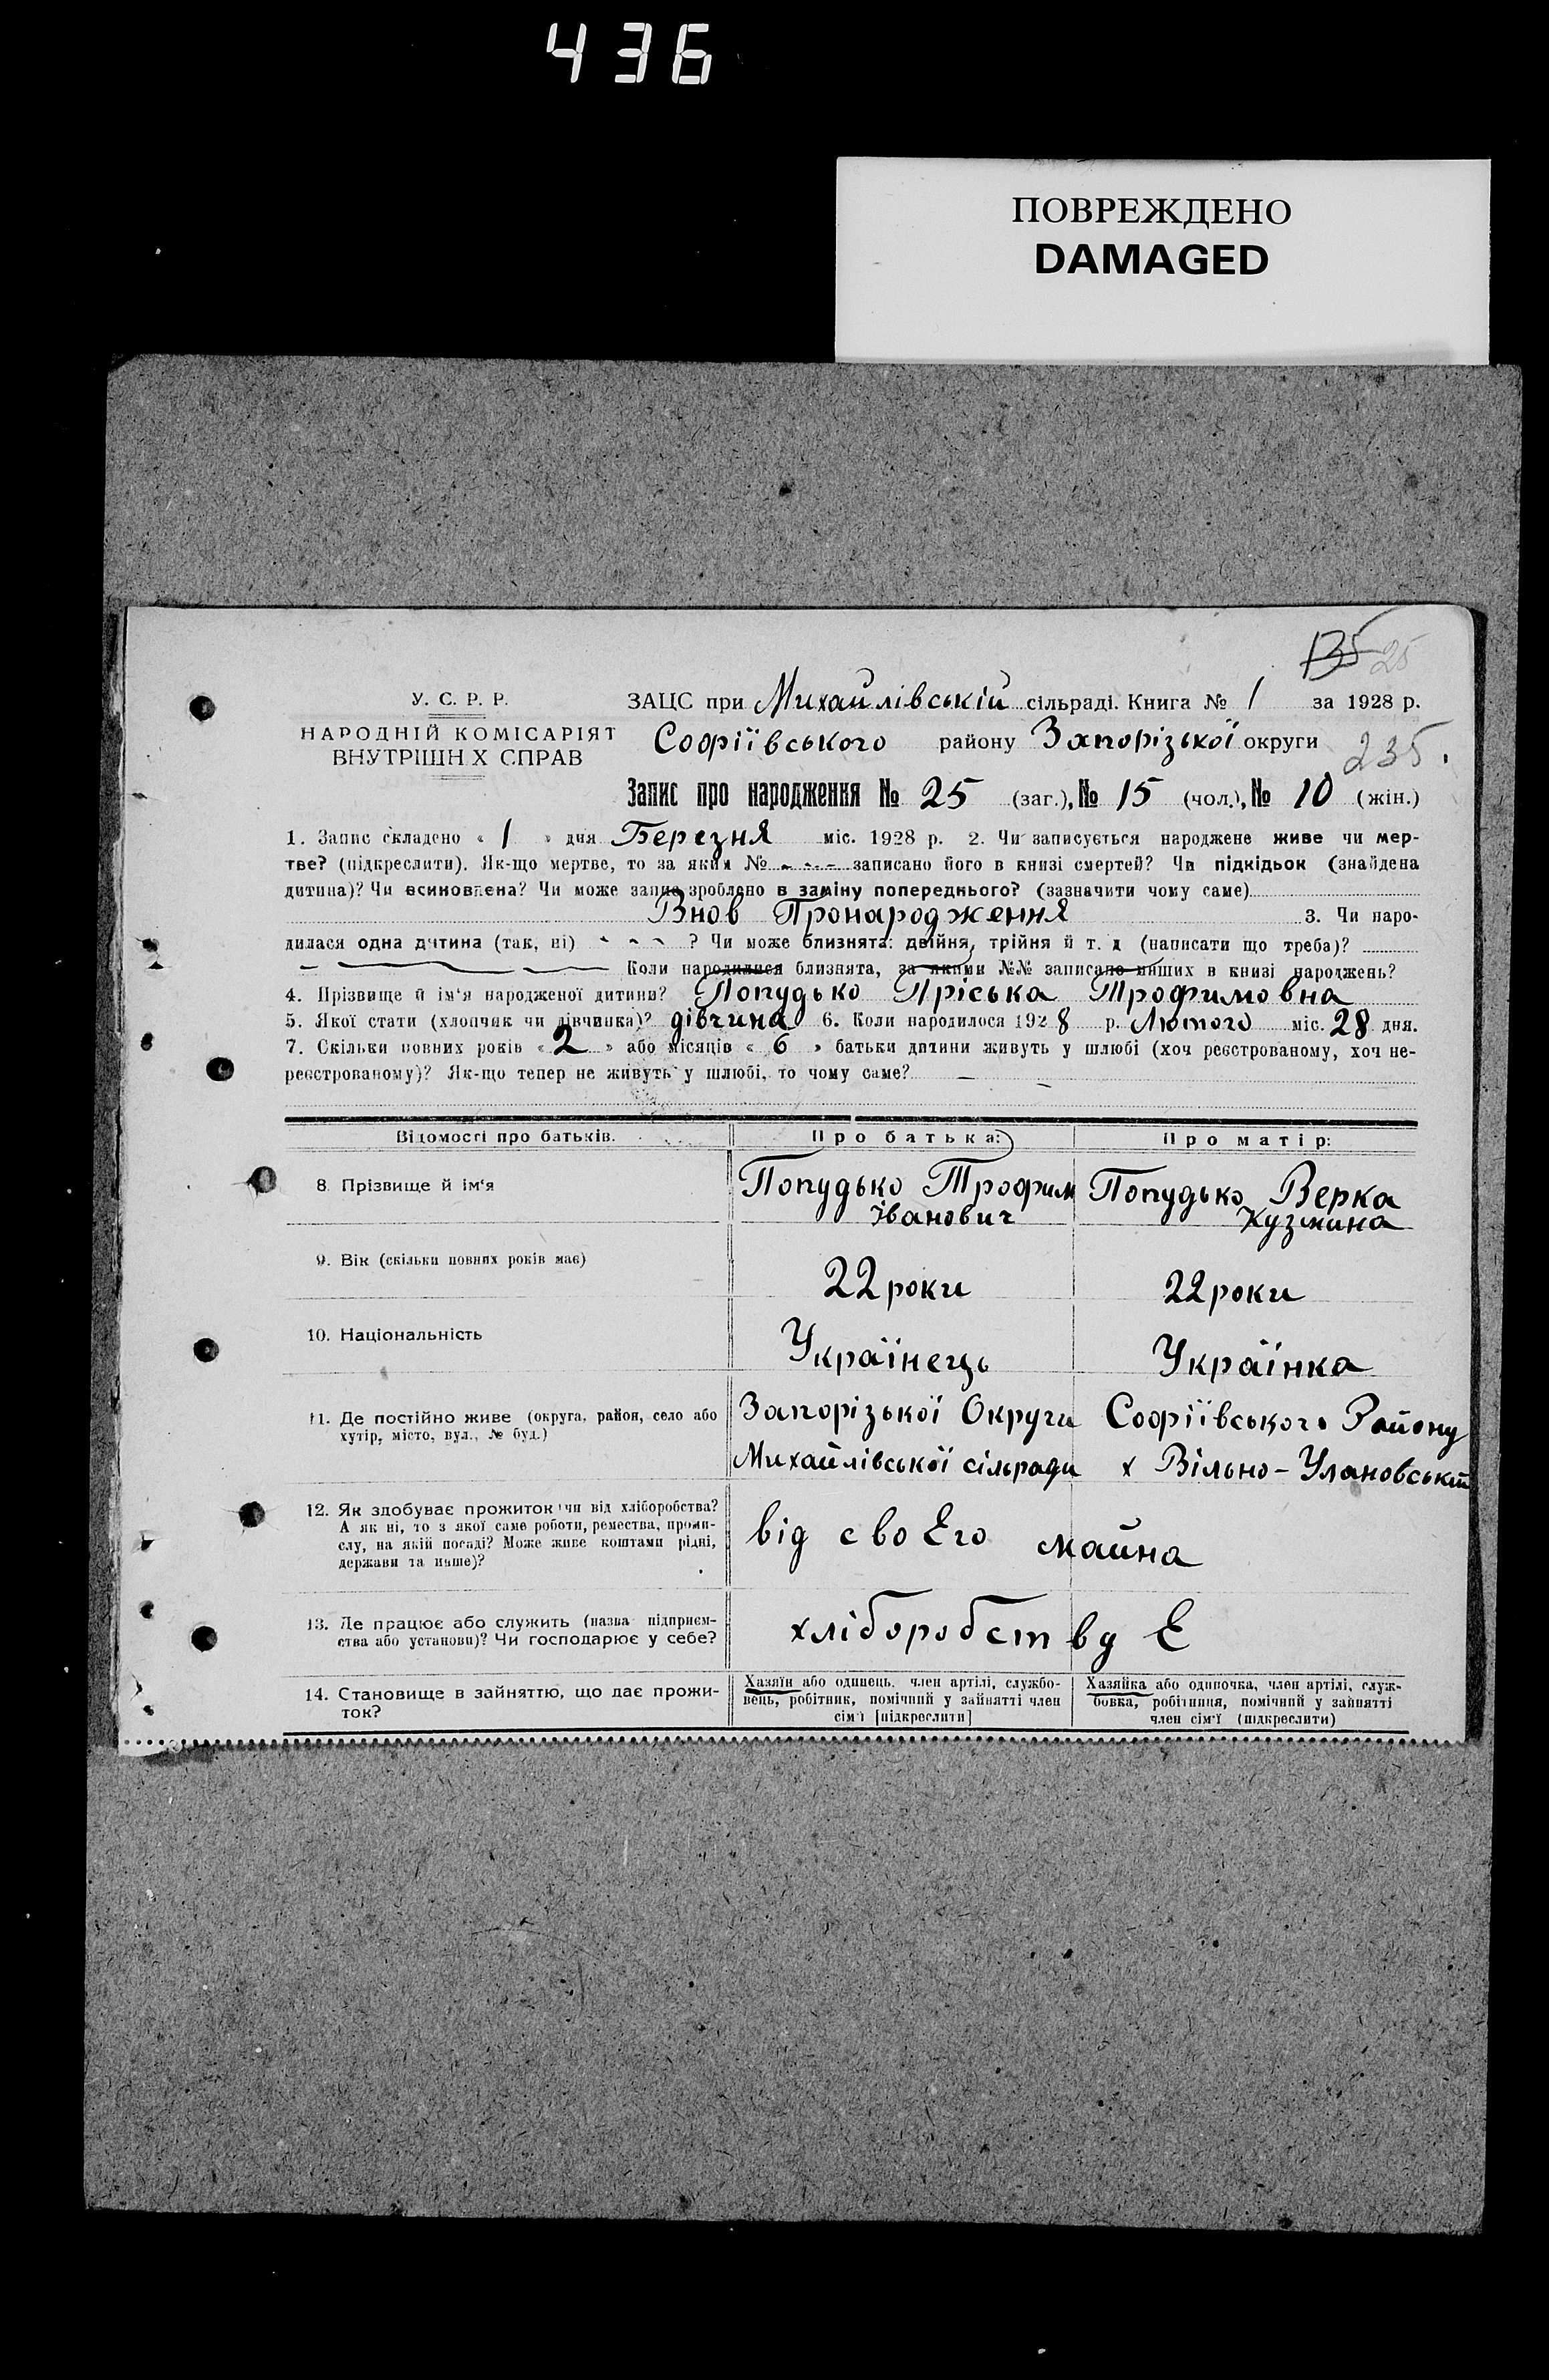 436
ПОВРЕЖДЕНО
DAMAGED
135 25
У. С. Р. Р.
НАРОДНІЙ КОМІСАРІЯТ
ВНУТРІШН Х СПРАВ
ЗАЦС при Михайлівській сільраді. Книга № 1 за 1928 р.
Софіївського району Запорізької округи
235.
Запис про народження № 25 (заг.), № 15 (чол.), № 10 (жін.)
1. Запис складено « 1 » дня Березня міс. 1928 р. 2. Чи записується народжене живе чи мер-
тве? (підкреслити). Як-що мертве, то за яким № - - - записано його в книзі смертей? Чи підкідьок (знайдена
дитина)? Чи всиновлена? Чи може запис зроблено в заміну попереднього? (зазначити чому саме)
Внов Пронародження 3. Чи наро-
дилася одна дитина (так, ні) - - - ? Чи може близнята: двійня, трійня й т. д (написати що треба)?
Коли народилися близнята, за якими №№ записано инших в книзі народжень?
4. Прізвище й ім'я народженої дитини? Попудько Пріська Трофимовна
5. Якої стати (хлопчик чи дівчинка)? дівчина 6. Коли народилося 1928 р. Лютого міс. 28 дня.
7. Скільки повних років « 2 » або місяців « 6 » батьки дитини живуть у шлюбі (хоч реєстрованому, хоч не-
реєстрованому)? Як-що тепер не живуть у шлюбі, то чому саме? —
Відомості про батьків. Про батька: Про матір:
8. Прізвище й ім'я Попудько Трофим Іванович Попудько Верка Кузмина
9. Вік (скільки повних років має) 22 роки 22 роки
10. Національність Українець Українка
11. Де постійно живе (округа, район, село або Запорізької Округи Софіївського Району
хутір, місто, вул., № буд.) Михайлівської сільради х Вільно-Улановський
12. Як здобуває прожиток чи від хліборобства?
А як ні, то з якої саме роботи, ремества, проми-
слу, на якій посаді? Може живе коштами рідні,
держави та инше)?
від своЕго майна
13. Де працює або служить (назва підприєм-
ства або установи)? Чи господарює у себе?
хліборобством вд Е
14. Становище в зайняттю, що дає прожи-
ток?
Хазяїн або одинець, член артілі, службо-
вець, робітник, помічний у зайнятті член
сім'ї [підкреслити]
Хазяйка або одиночка, член артілі, служ-
бовка, робітниця, помічний у зайнятті
член сім'ї (підкреслити)